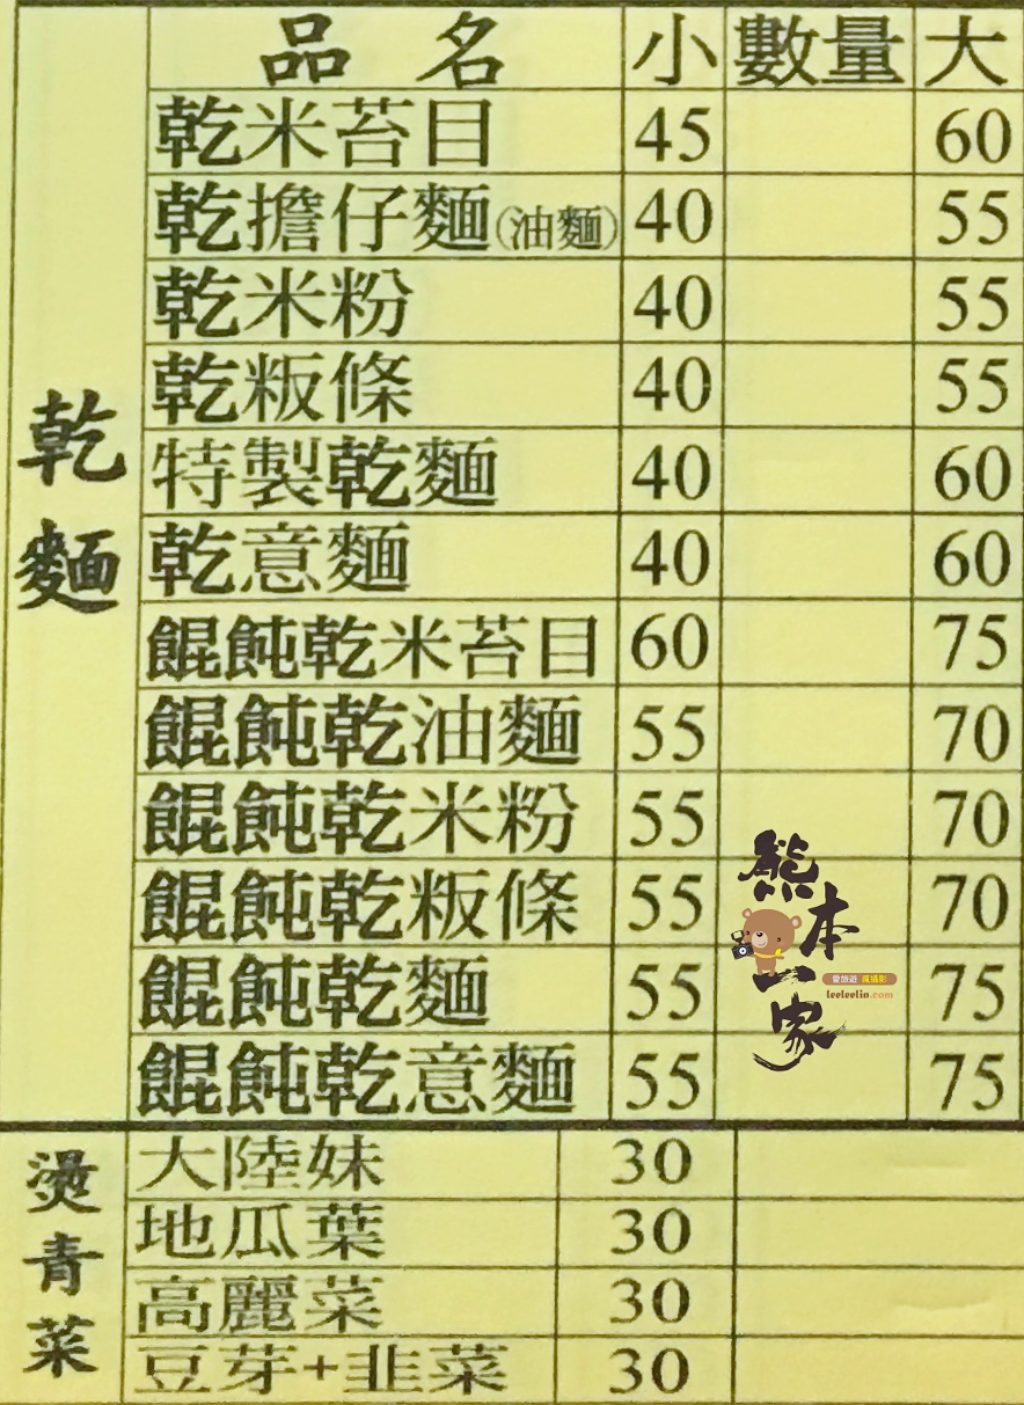 品名 小 數量 大
乾麵
乾米苔目 45 60
乾擔仔麵(油麵) 40 55
乾米粉 40 55
乾粄條 40 55
特製乾麵 40 60
乾意麵 40 60
餛飩乾米苔目 60 75
餛飩乾油麵 55 70
餛飩乾米粉 55 70
餛飩乾粄條 55 70
餛飩乾麵 55 75
餛飩乾意麵 55 75
燙青菜
大陸妹 30
地瓜葉 30
高麗菜 30
豆芽+韭菜 30
熊本一家
愛旅遊 瘋攝影
leeleelin.com